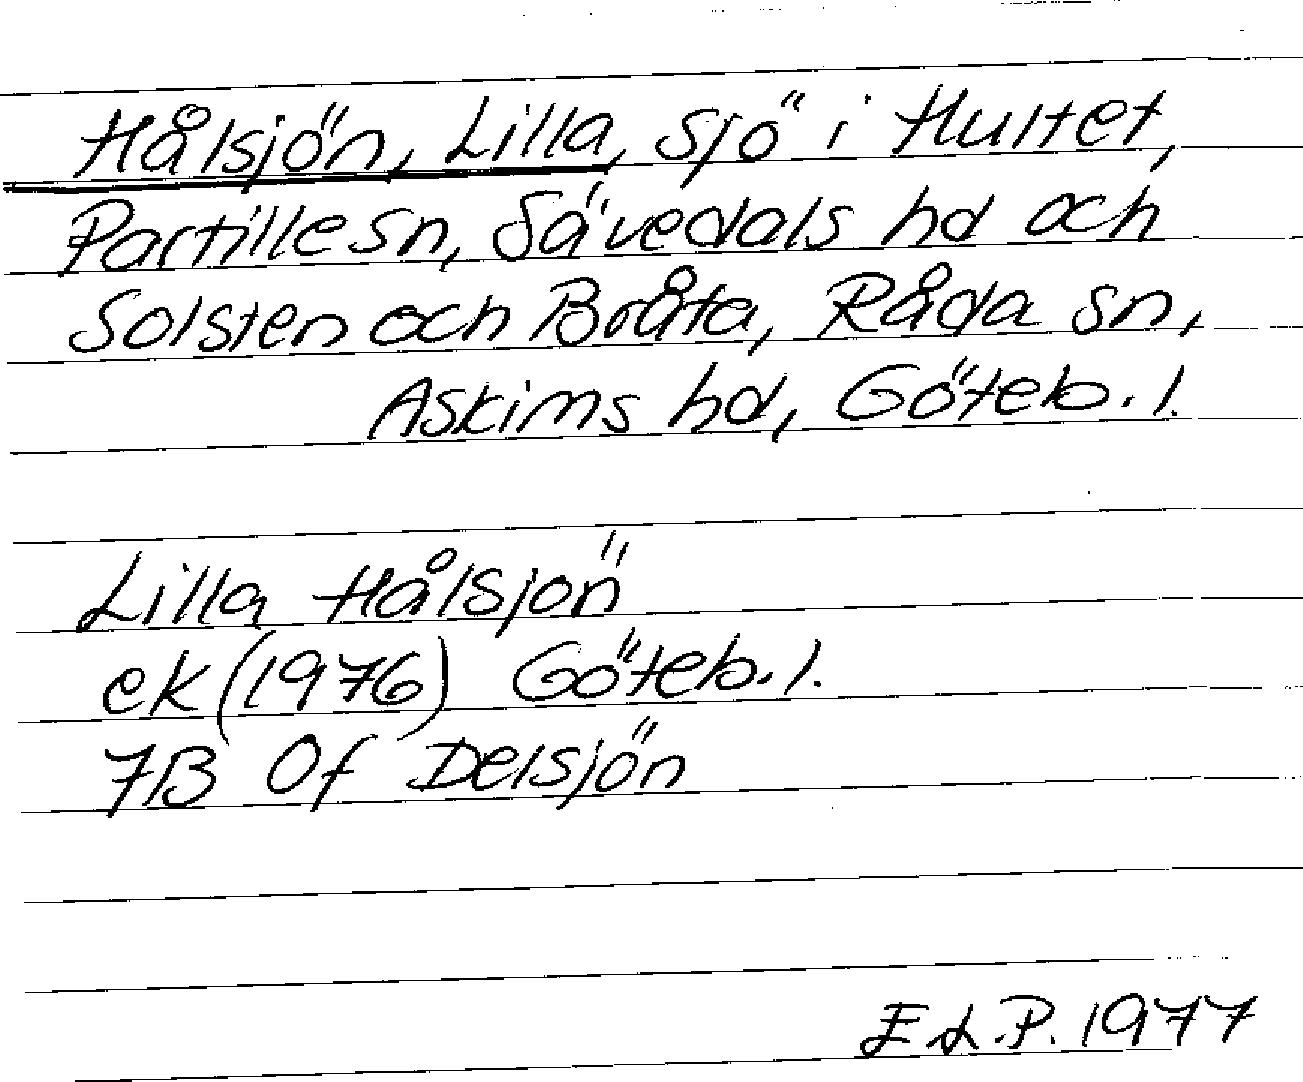 Hålsjön, Lilla, sjö i Hultet,
Partille sn, Sävedals hd och
Solsten och Bråta, Råda sn,
Askims hd, Göteb. l.
Lilla Hålsjön
ek (1976) Göteb. l.
7B 0f Delsjön
E L.P. 1977